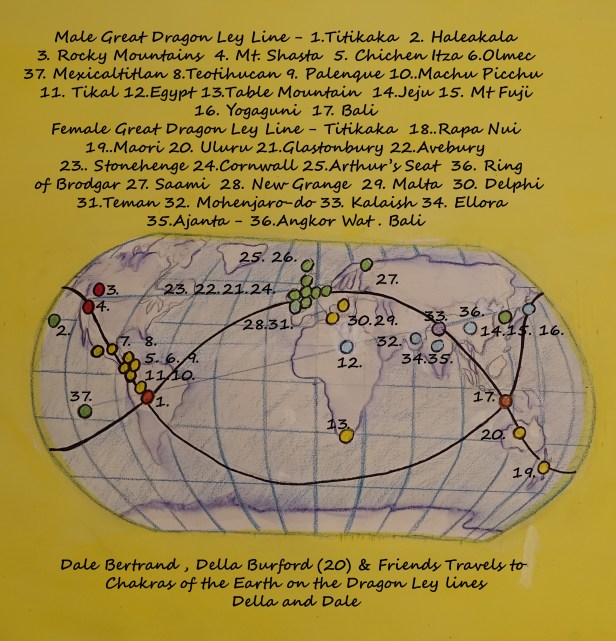 Male Great Dragon Ley Line - 1.Titikaka 2. Haleakala
3. Rocky Mountains 4. Mt. Shasta 5. Chichen Itza 6.Olmec
37. Mexicaltitlan 8.Teotihucan 9. Palenque 10..Machu Picchu
11. Tikal 12.Egypt 13.Table Mountain 14.Jeju 15. Mt Fuji
16. Yogaguni 17. Bali
Female Great Dragon Ley Line - Titikaka 18..Rapa Nui
19..Maori 20. Uluru 21.Glastonbury 22.Avebury
23.. Stonehenge 24.Cornwall 25.Arthur's Seat 36. Ring
of Brodgar 27. Saami 28. New Grange 29. Malta 30. Delphi
31.Teman 32. Mohenjaro-do 33. Kalaish 34. Ellora
35.Ajanta - 36.Angkor Wat . Bali
25. 26.
27.
3.
23. 22.21.24.
4.
2.
28.31.
30.29.
33.
36.
14.15. 16.
7. 8.
32.
5. 6. 9.
12.
34.35.
11.10.
37.
1.
17.
13.
20.
19.
Dale Bertrand , Della Burford (20) & Friends Travels to
Chakras of the Earth on the Dragon Ley lines
Della and Dale